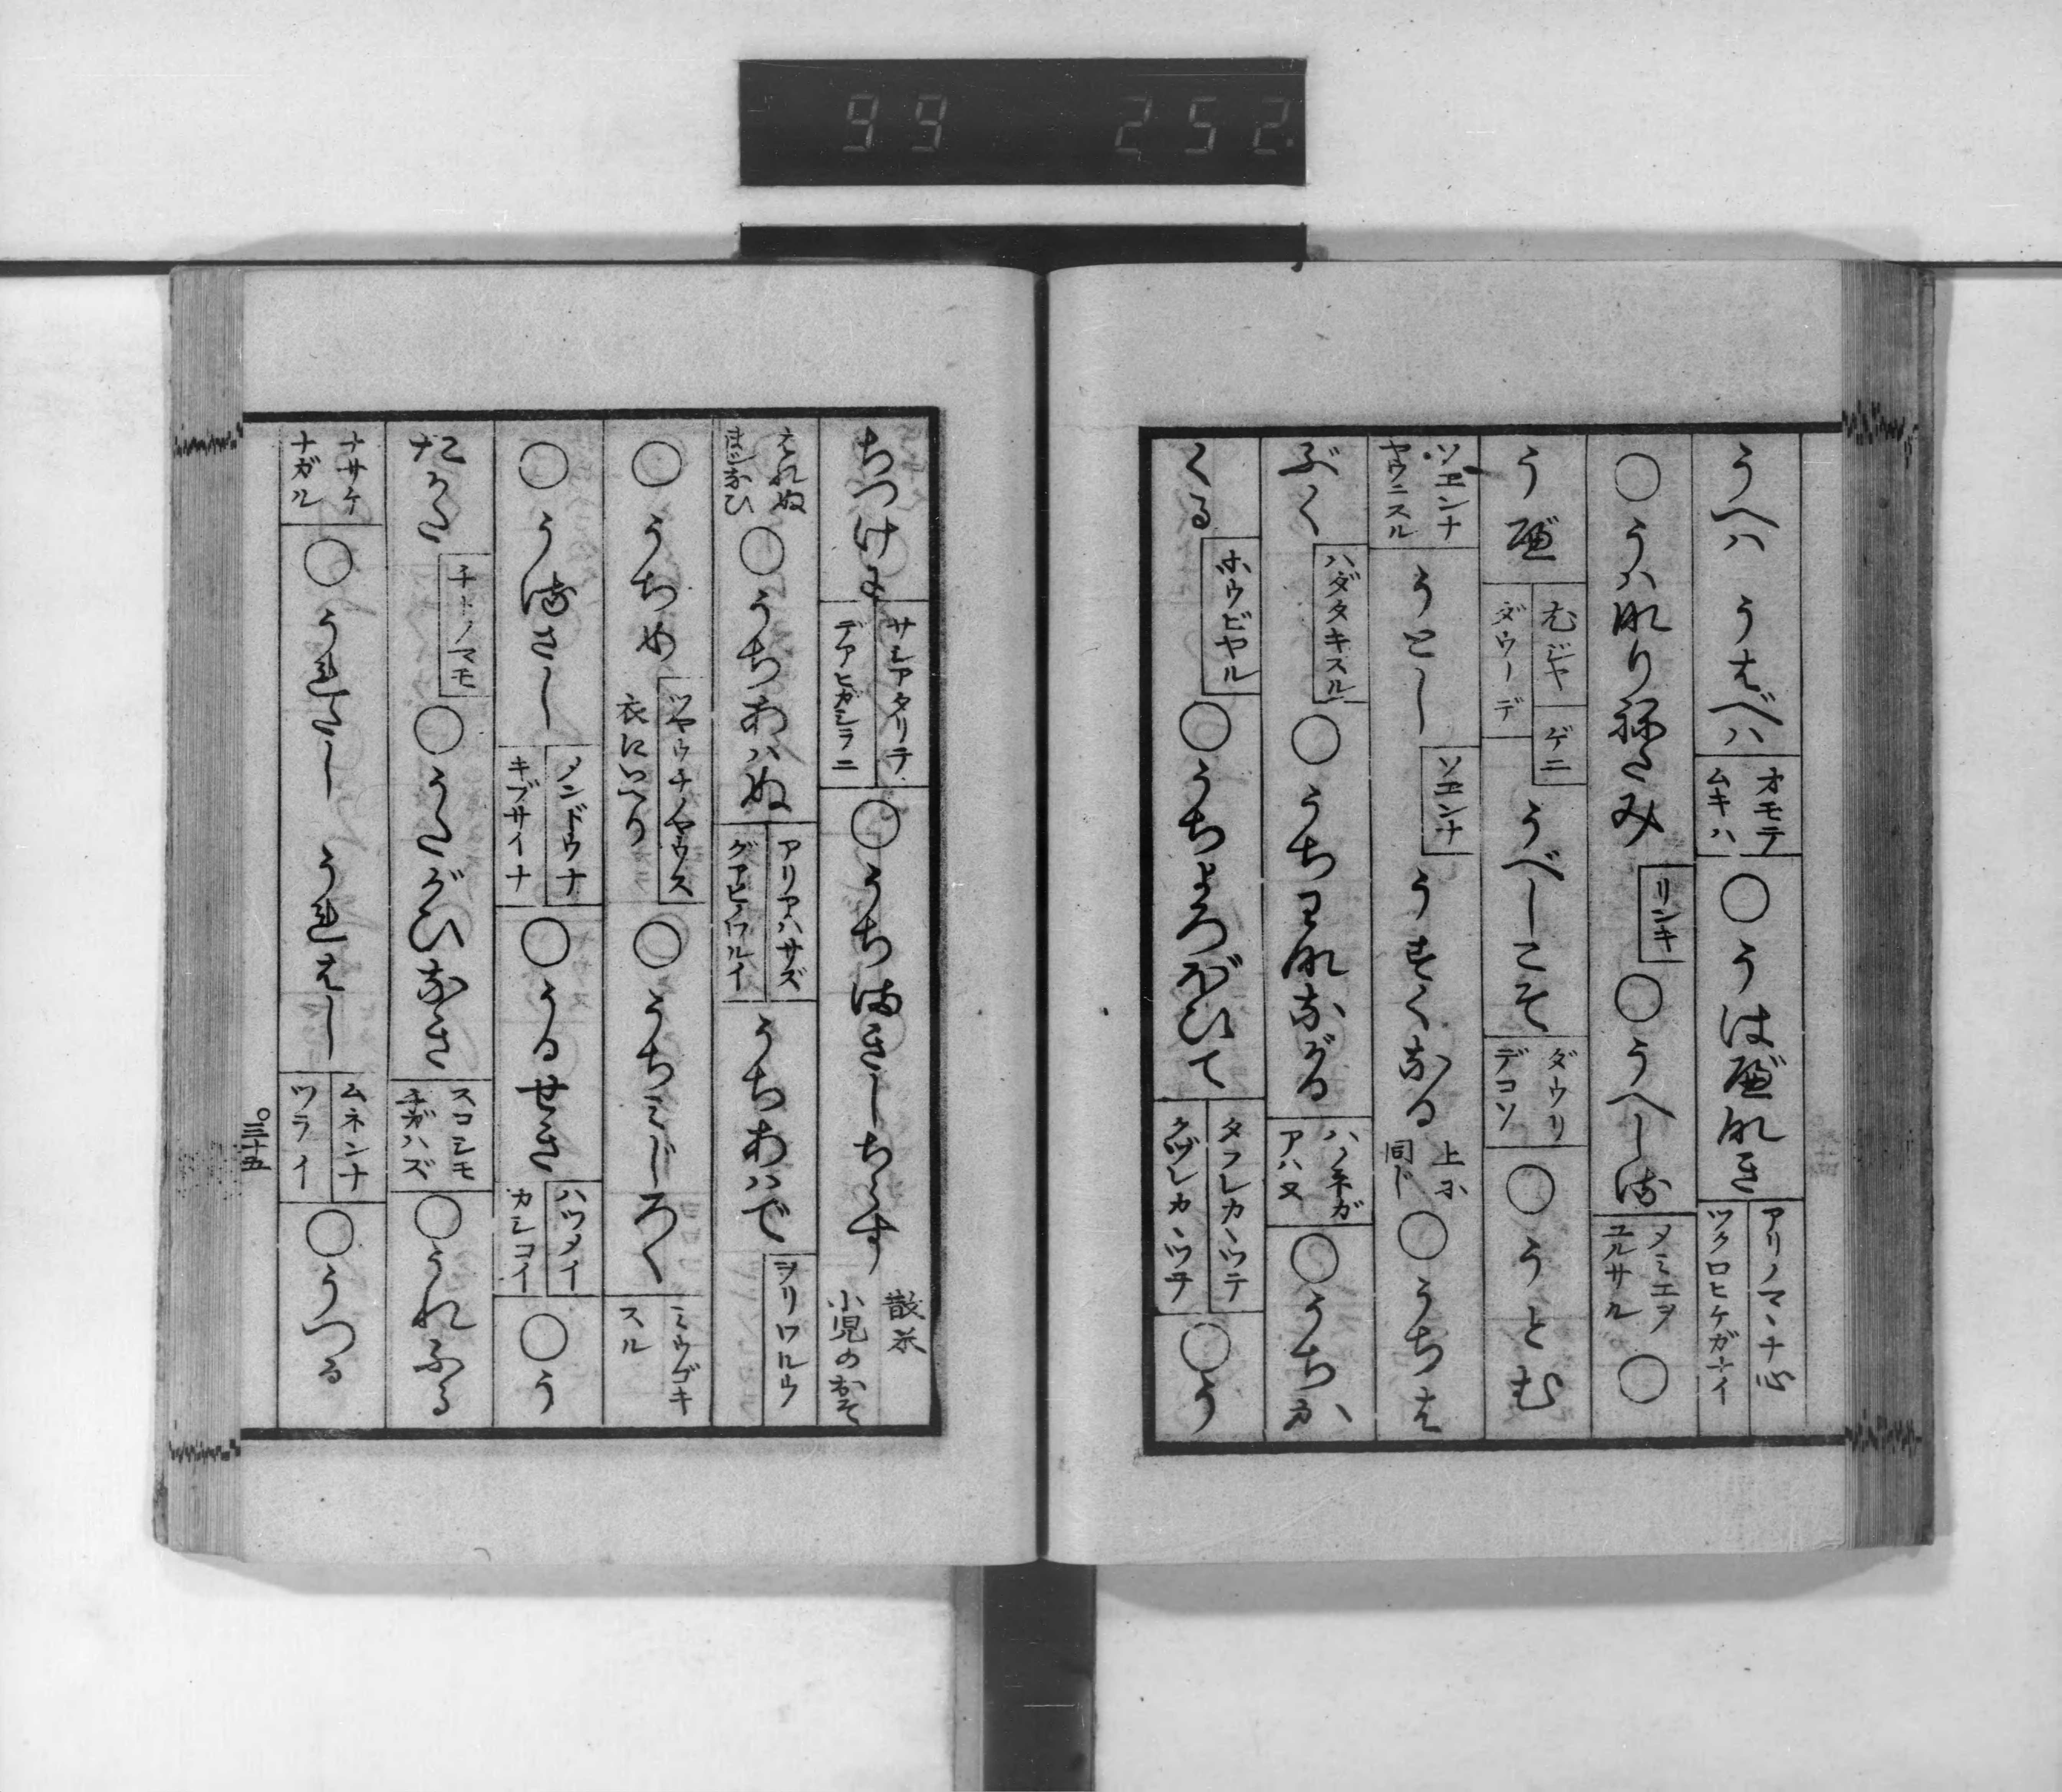 99 252.
うへハ うはべハ オモテムキハ ○うはべなき アリノマヽナ心 ツクロヒケガナイ
○うハなりねたみ リンキ ○うへしほ メミエヲユルサル ○
うべ むじヤ ゲニ ダウリデ うべしこそ ダウリデコソ ○うとむ
ソエンナヤウニスル うとし ソエンナ うすくなる 上ニ同ジ ○うちは
ぶく ハダタキスル ○うちハなながる ハヾガアハヌ ○うちか
くる ホウビヤル ○うちよろぼひて タフレカヽツテ クヅレカヽツテ ○う
ちつけに サシアタリテ デアヒガシラニ ○うちまきしちらす 散米 小児のおそ
はれぬまじなひ ○うちあハぬ アリアハサズ グアヒノワルイ うちあハで ヲリワルウ
○うちめ ツヤウチノヤウス 衣にいへり ○うちミじろく ミウゴキスル
○うるさし メンドウナ キブサイナ ○うるせき ハツメイ カシコイ ○う
たかた チトノマモ ○うたがひなき スコシモチガハズ ○うれふる
ナサケナガル ○うれたし うれはし ムネンナ ツライ ○うつる
○三十五